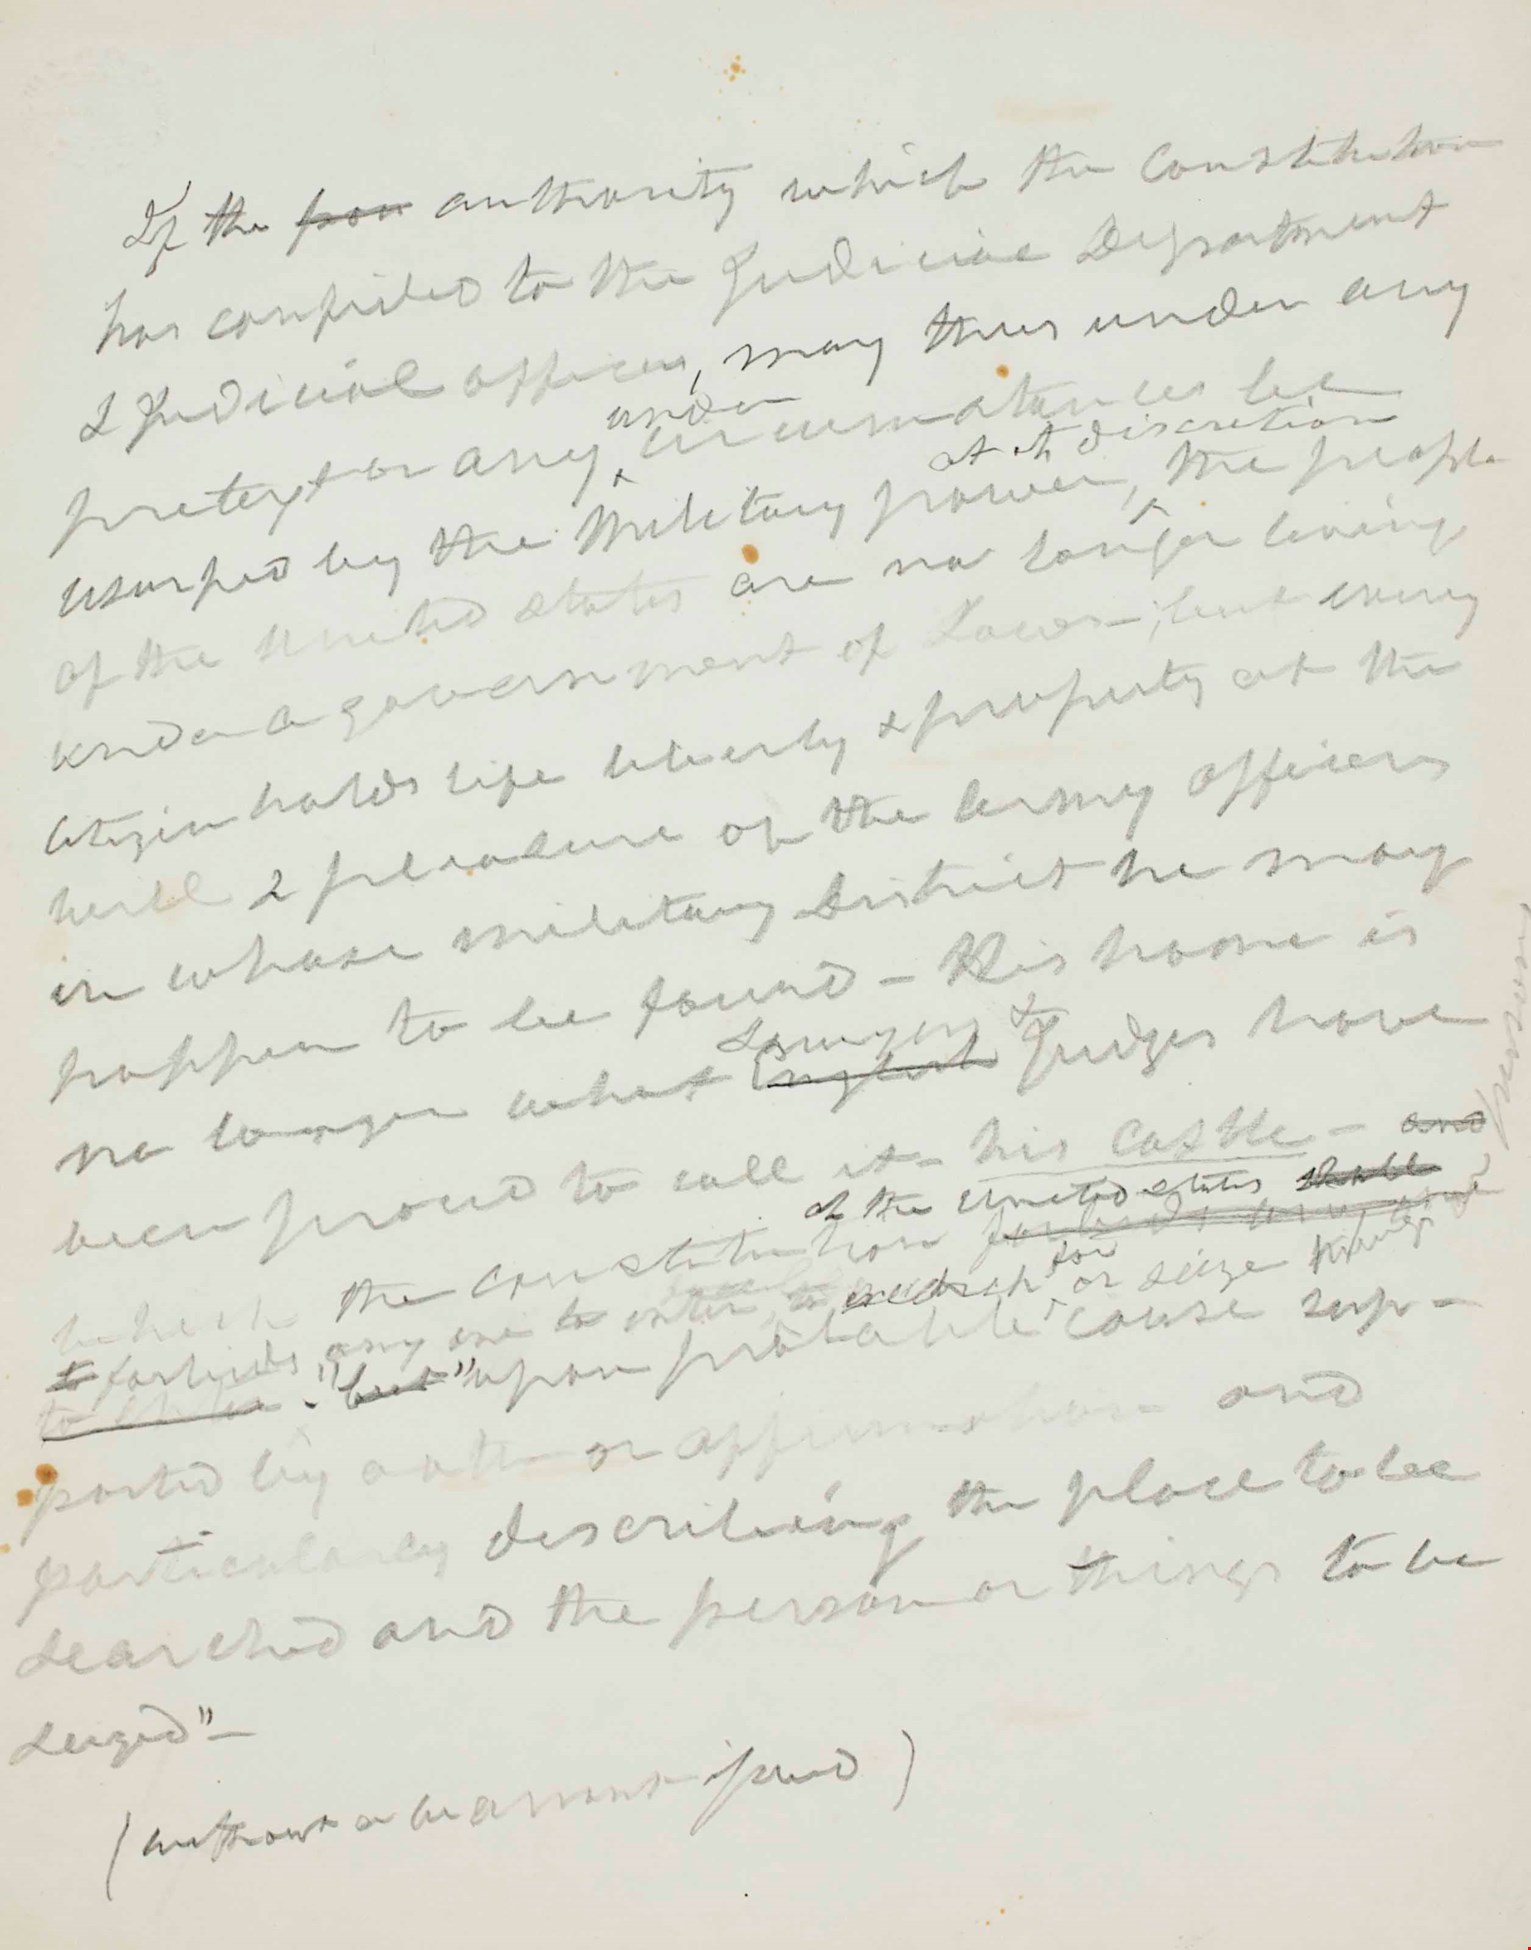 If the pow authority which the Constitution
has confided to the Judicial Department
& Judicial officers, may thus under any
pretext or any circumstances be
under
usurped by the Military power, the people
at its discretion
of the United States are no longer living
under a government of Laws—; but every
citizen holds life liberty & property at the
will & pleasure of the army officers
in whose military District he may
happen to be found — His home is
no longer what English Judges have
Lawyers &
been proud to call it – his Castle – and
of the United States shall
which the constitution forbids any one
forbids any one to enter, to search for, or seize things,
persons
to enter. "but" upon probable cause sup-
ported by oath or affirmation and
particularly describing the place to be
searched and the person or things to be
seized" —
(without a warrant issued)